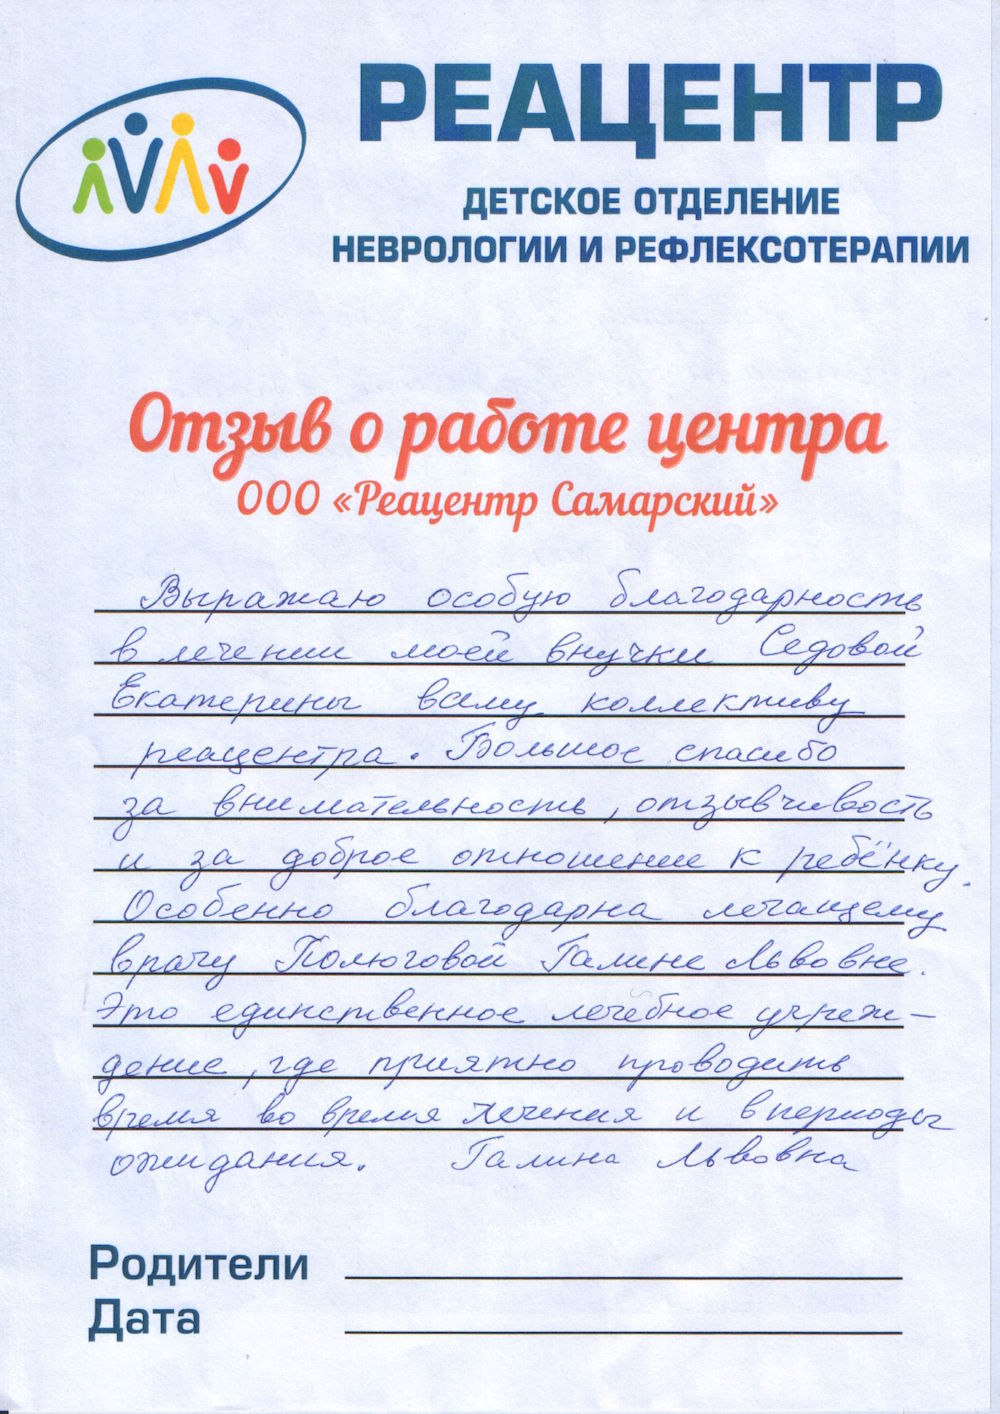 РЕАЦЕНТР
ДЕТСКОЕ ОТДЕЛЕНИЕ
НЕВРОЛОГИИ И РЕФЛЕКСОТЕРАПИИ
Отзыв о работе центра
ООО «Реацентр Самарский»
Выражаю особую благодарность
в лечении моей внучки Седовой
Екатерины всему коллективу
реацентра. Большое спасибо
за внимательность, отзывчивость
и за доброе отношение к ребёнку.
Особенно благодарна лечащему
врачу Полюговой Галине Львовне.
Это единственное лечебное учреж-
дение, где приятно проводить
время во время лечения и в периоды
ожидания. Галина Львовна
Родители
Дата